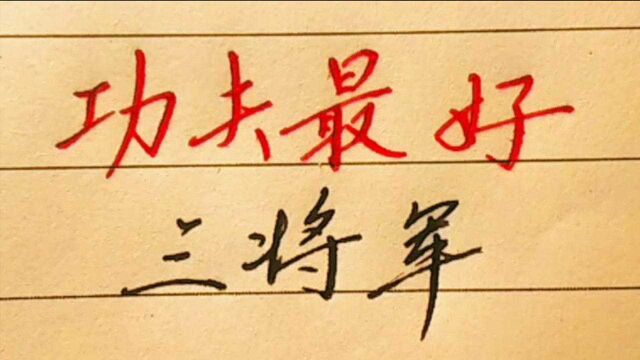 功夫最好
三将军